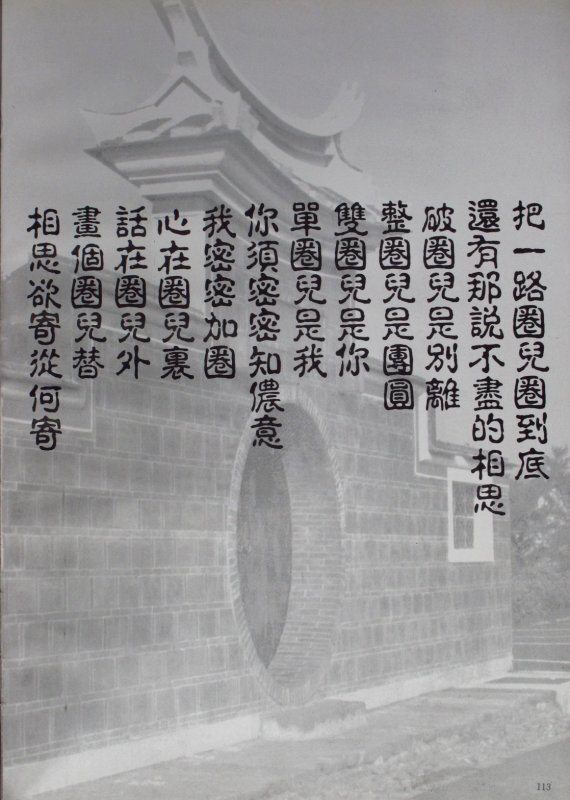 相思欲寄從何寄
畫個圈兒替
話在圈兒外
心在圈兒裏
我密密加圈
你須密密知儂意
單圈兒是我
雙圈兒是你
整圈兒是團圓
破圈兒是別離
還有那說不盡的相思
把一路圈兒圈到底
113